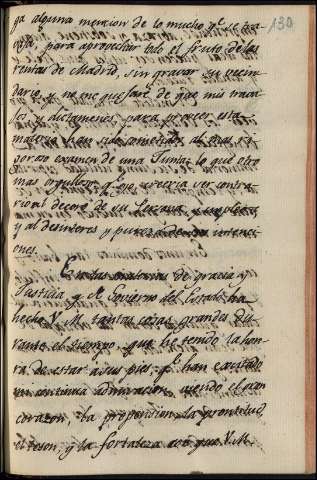 130
ga alguna mencion de lo mucho q.e se tra-
para aprovechar todo el fruto de las
rentas de Madrid, sin gravar su vecin-
dario, y no me quejaré de que mis
y dictamenes, para proveer esta
materia, sido sometidos al mas ri-
goroso examen de una Junta, lo que otro
mas orgulloso q.e yo, creeria ser contra-
rio al decoro de su persona, y empleos,
y al desinteres y pureza de sus intenci-
ones.
En las materias de gracia y
Justicia, y el Govierno del Estado ha
hecho V. M. tantas cosas grandes du-
rante el tiempo, que he tenido la hon-
ra de estar a sus pies, q.e han excitado
mi continua admiracion, viendo el gran
corazon, la propension, la prontitud,
el teson, y la fortaleza con que V. M.